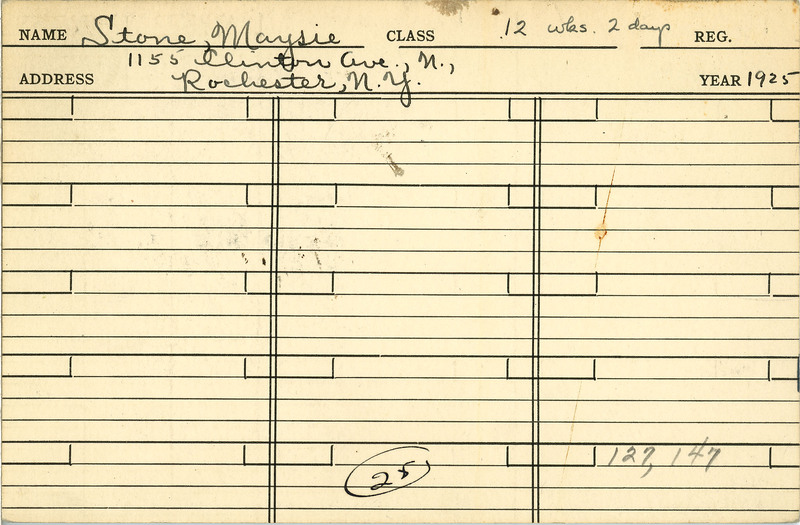 NAME Stone, Maysie CLASS 12 wks. 2 days REG.
1155 Clinton Ave., N.,
ADDRESS Rochester, N.Y. YEAR 1925
127, 147
25